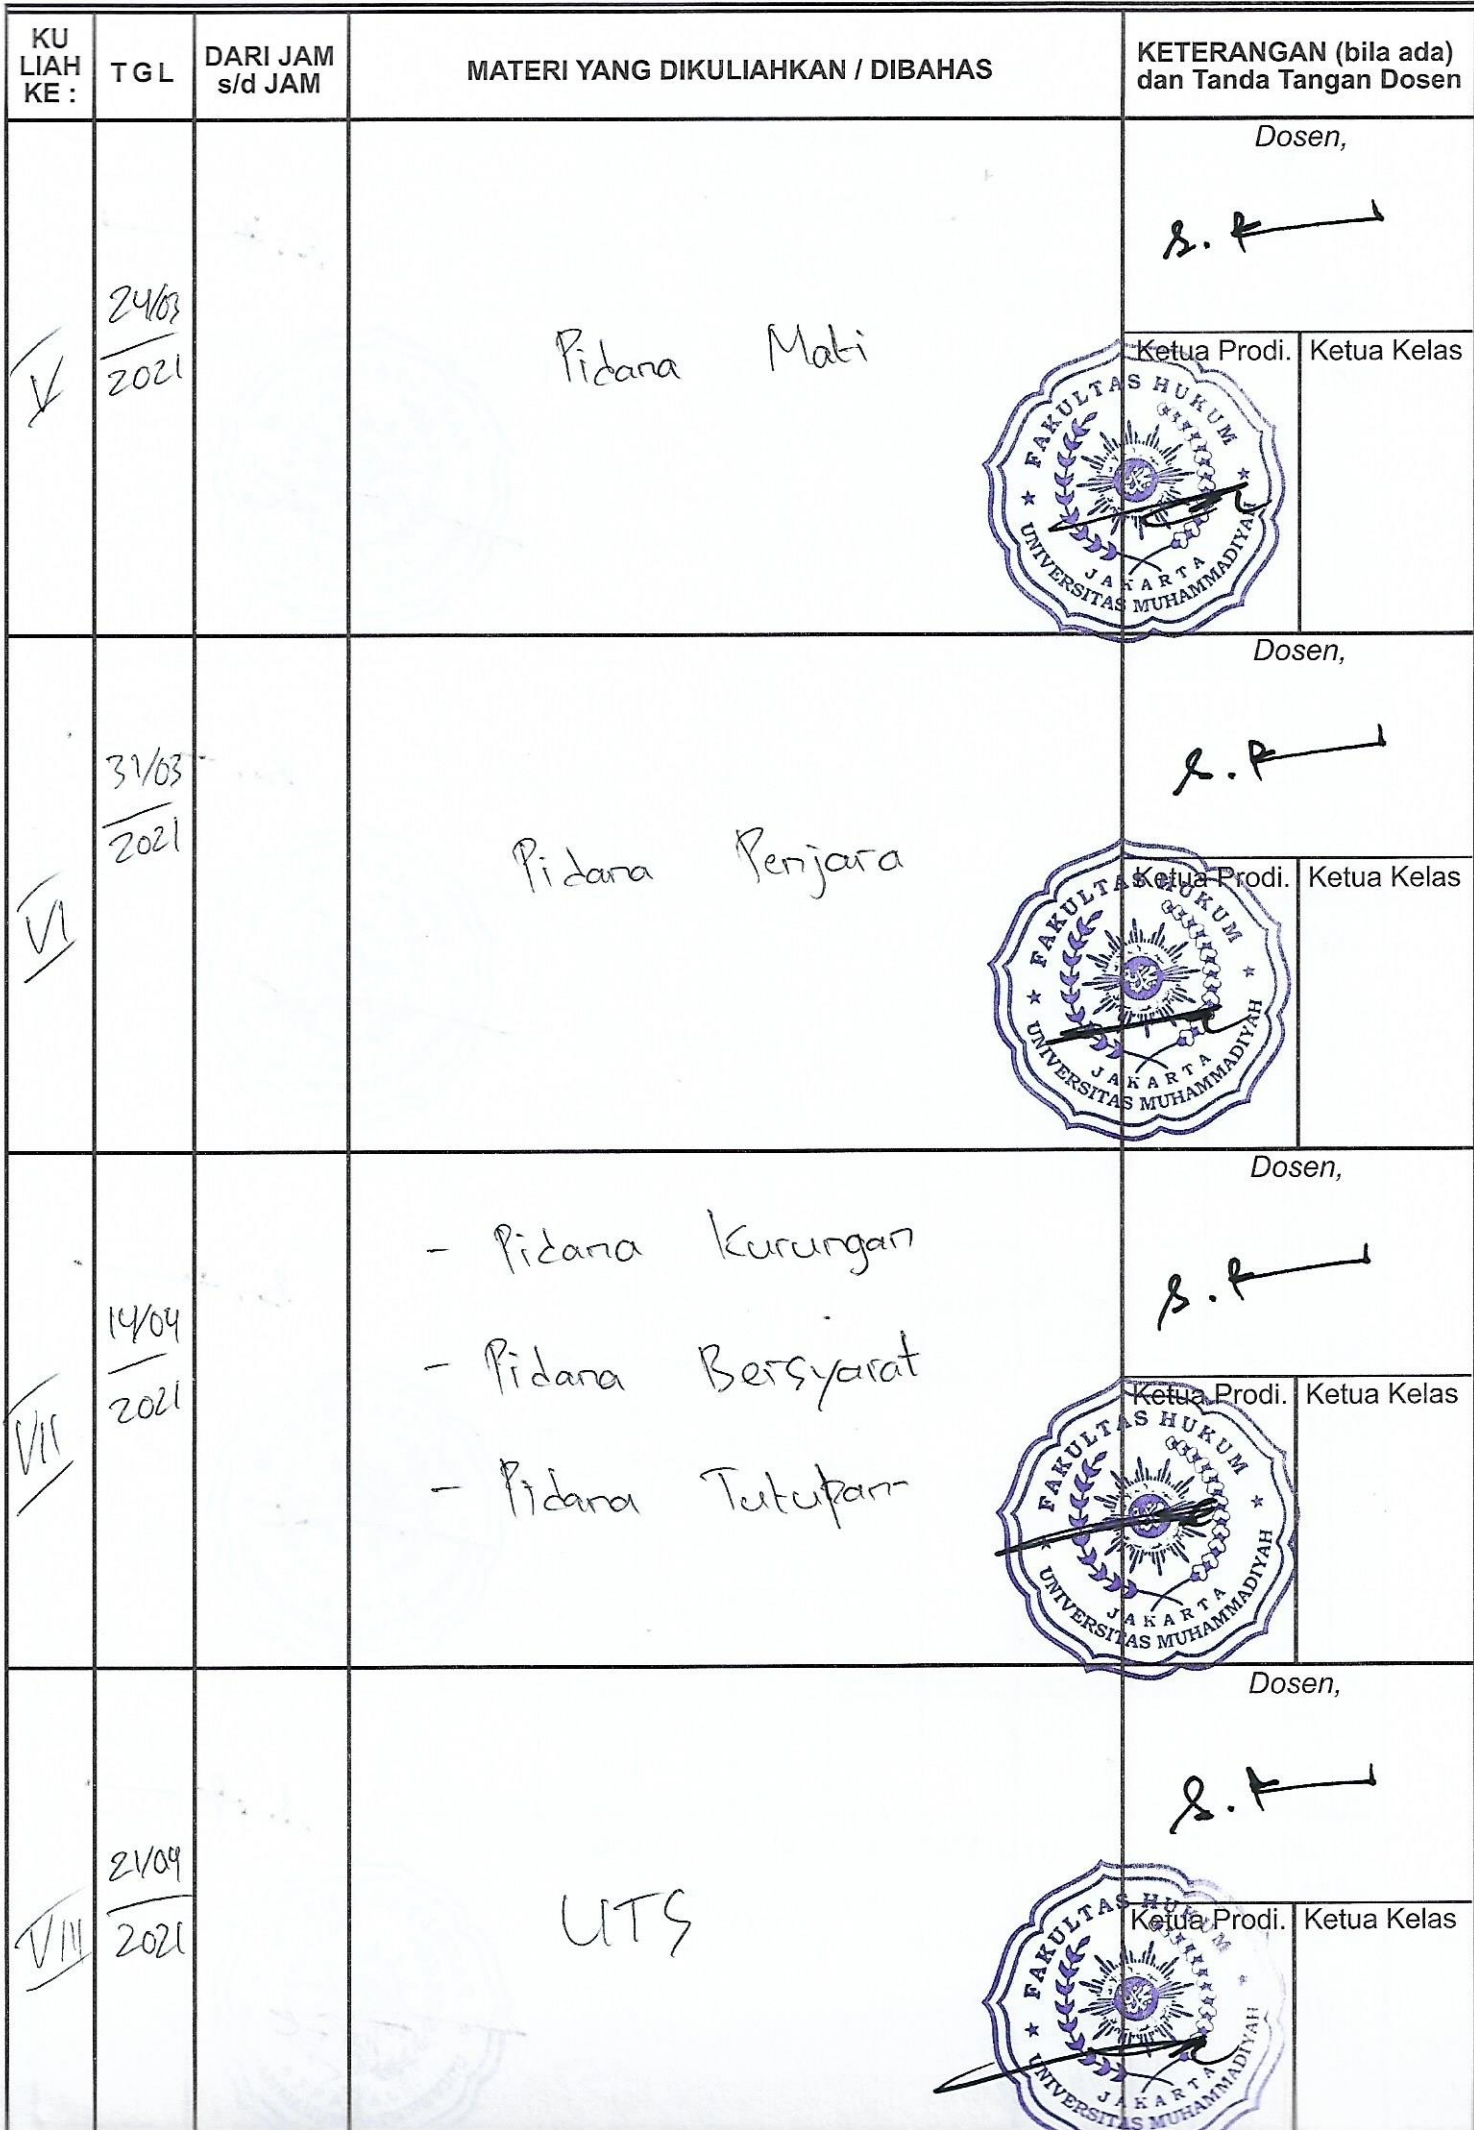 KU LIAH KE :
TGL
DARI JAM s/d JAM
MATERI YANG DIKULIAHKAN / DIBAHAS
KETERANGAN (bila ada) dan Tanda Tangan Dosen
V
24/03
2021
Pidana Mati
Dosen,
Ketua Prodi.
Ketua Kelas
FAKULTAS HUKUM
JAKARTA
UNIVERSITAS MUHAMMADIYAH
VI
31/03
2021
Pidana Penjara
Dosen,
Ketua Prodi.
Ketua Kelas
FAKULTAS HUKUM
JAKARTA
UNIVERSITAS MUHAMMADIYAH
VII
14/04
2021
- Pidana Kurungan
- Pidana Bersyarat
- Pidana Tutupan
Dosen,
Ketua Prodi.
Ketua Kelas
FAKULTAS HUKUM
JAKARTA
UNIVERSITAS MUHAMMADIYAH
VIII
21/04
2021
UTS
Dosen,
Ketua Prodi.
Ketua Kelas
FAKULTAS HUKUM
JAKARTA
UNIVERSITAS MUHAMMADIYAH